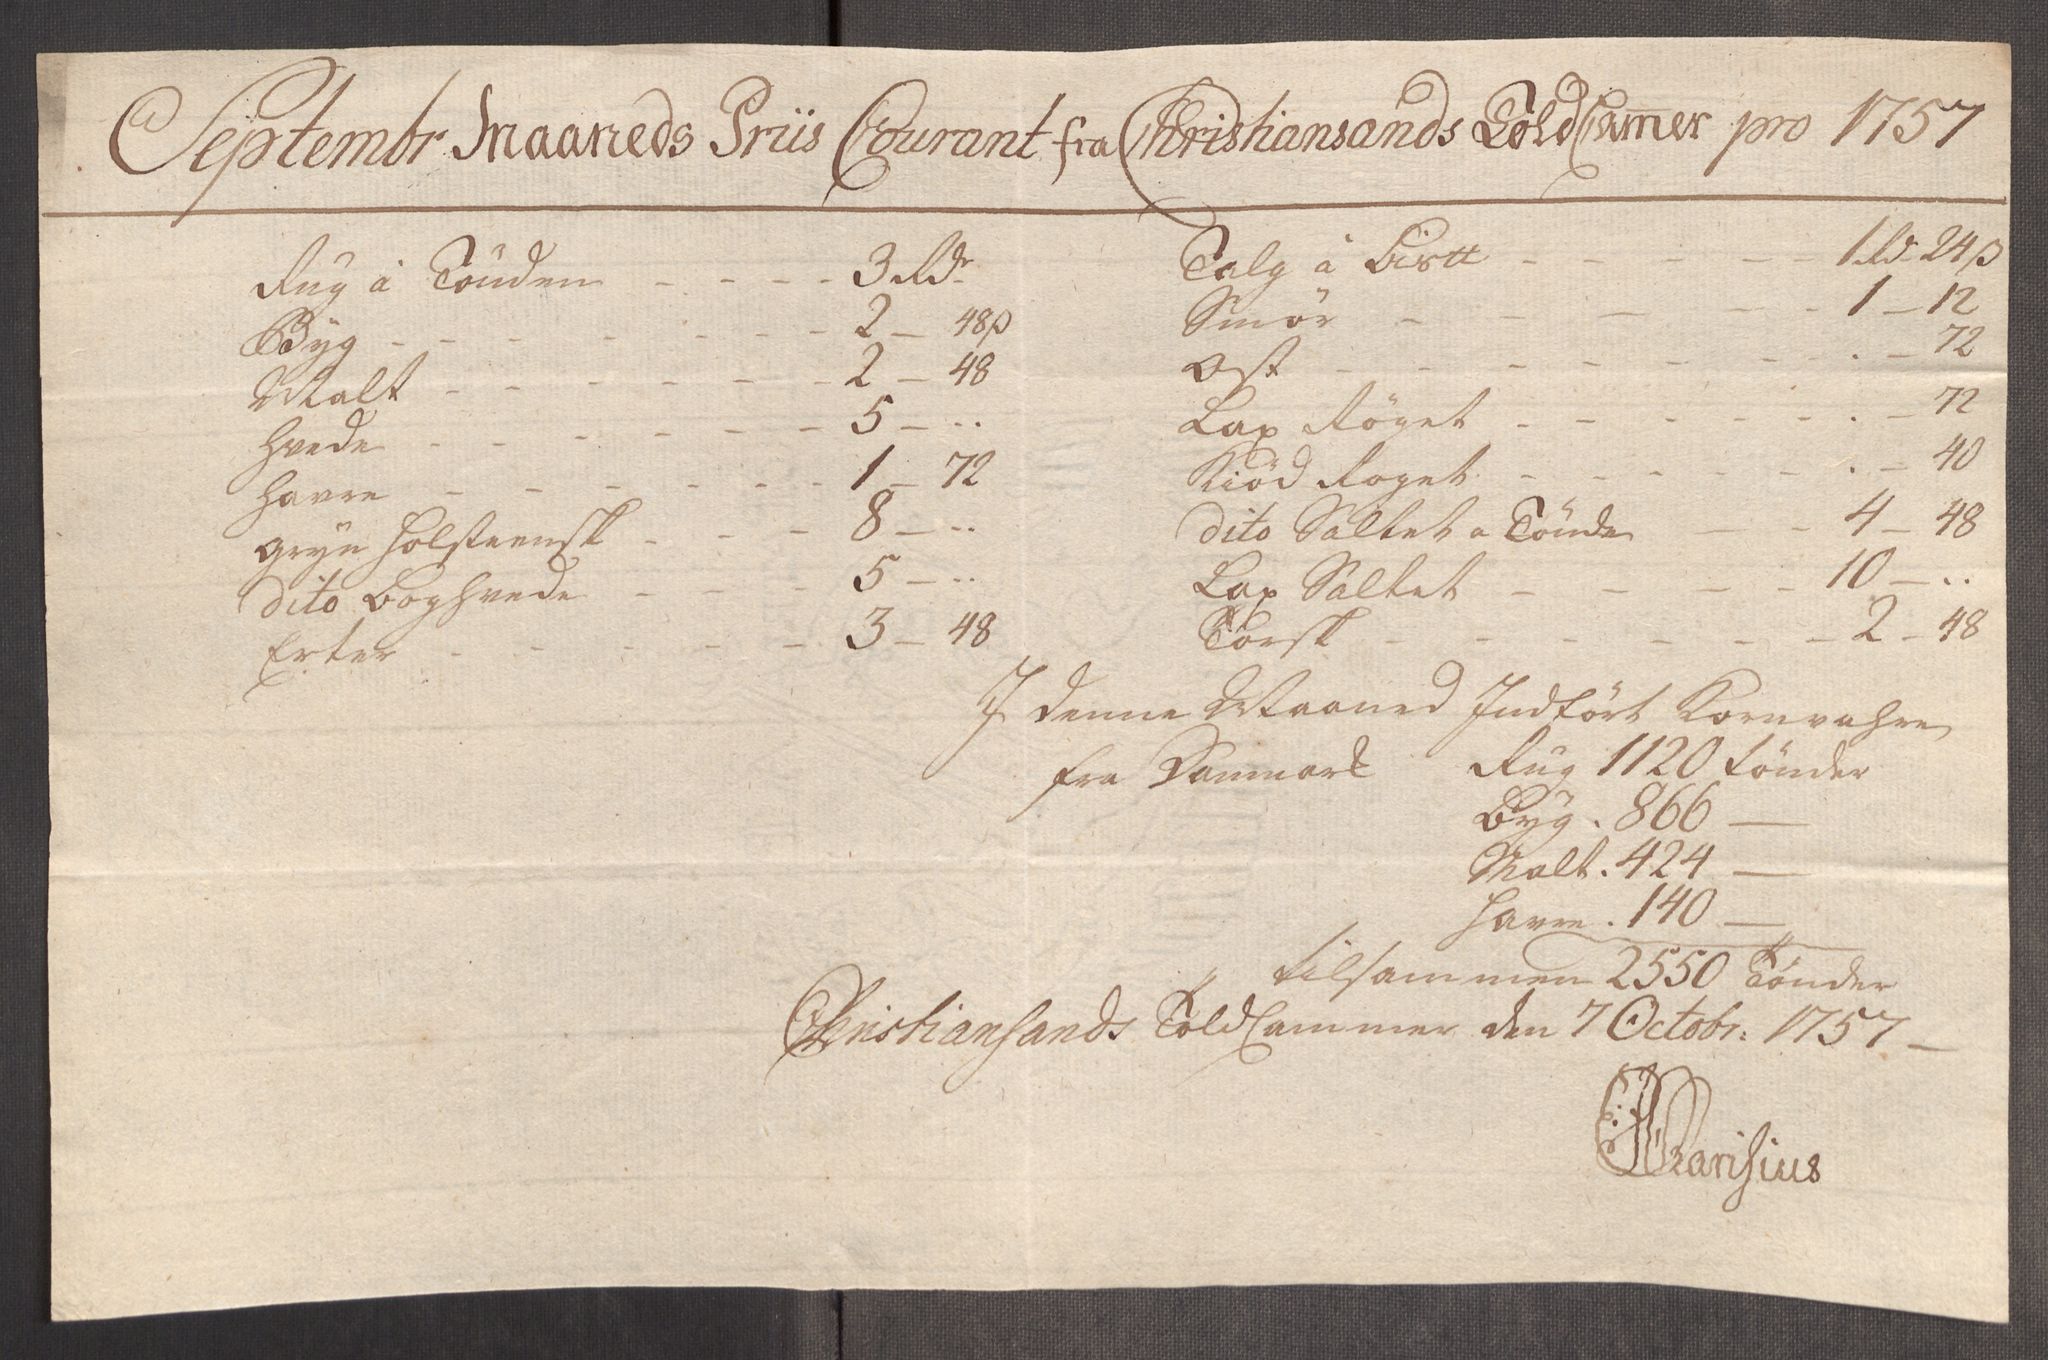 Septembr Maaneds Priis Courant fra Christiansands Told Cam̄er pro 1757
Rug à Tönden - - - - 3 Rdr
Byg - - - - - - - 2 - 48 β
Malt - - - - - - - 2 - 48
Hvede - - - - - - - 5 - ..
Havre - - - - - - - 1 - 72
Gryn Holsteensk - - - 8 - ..
dito Boghvede - - - 5 - ..
Erter - - - - - - 3 - 48
Talg à - - - - - 1 Rd 24 β
Smör - - - - - - 1 - 12
Ost - - - - - - - . - 72
Lax Röget - - - - - - . - 72
Kiöd Röget - - - - - . - 40
dito Saltet a Tönde - - 4 - 48
Lax Saltet - - - - - 10 - ..
Torsk - - - - - - - 2 - 48
I denne Maaned Indfört Kornvahre
fra Danmark Rug 1120 tönder
Byg . 866 —
Malt . 424 —
Havre . 140 —
tilsammen 2550 Tönder
Christiansands Told Cammer den 7 Octobr: 1757 —